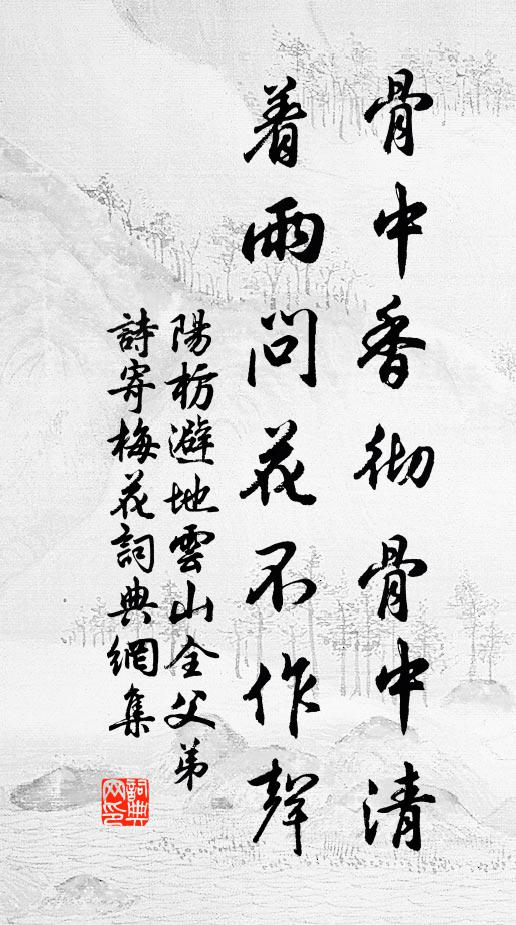 骨中香彻骨中清
着雨問花不作聲
陽枋避地雲山全父弟
詩寄梅花詞典網集
詞典
网